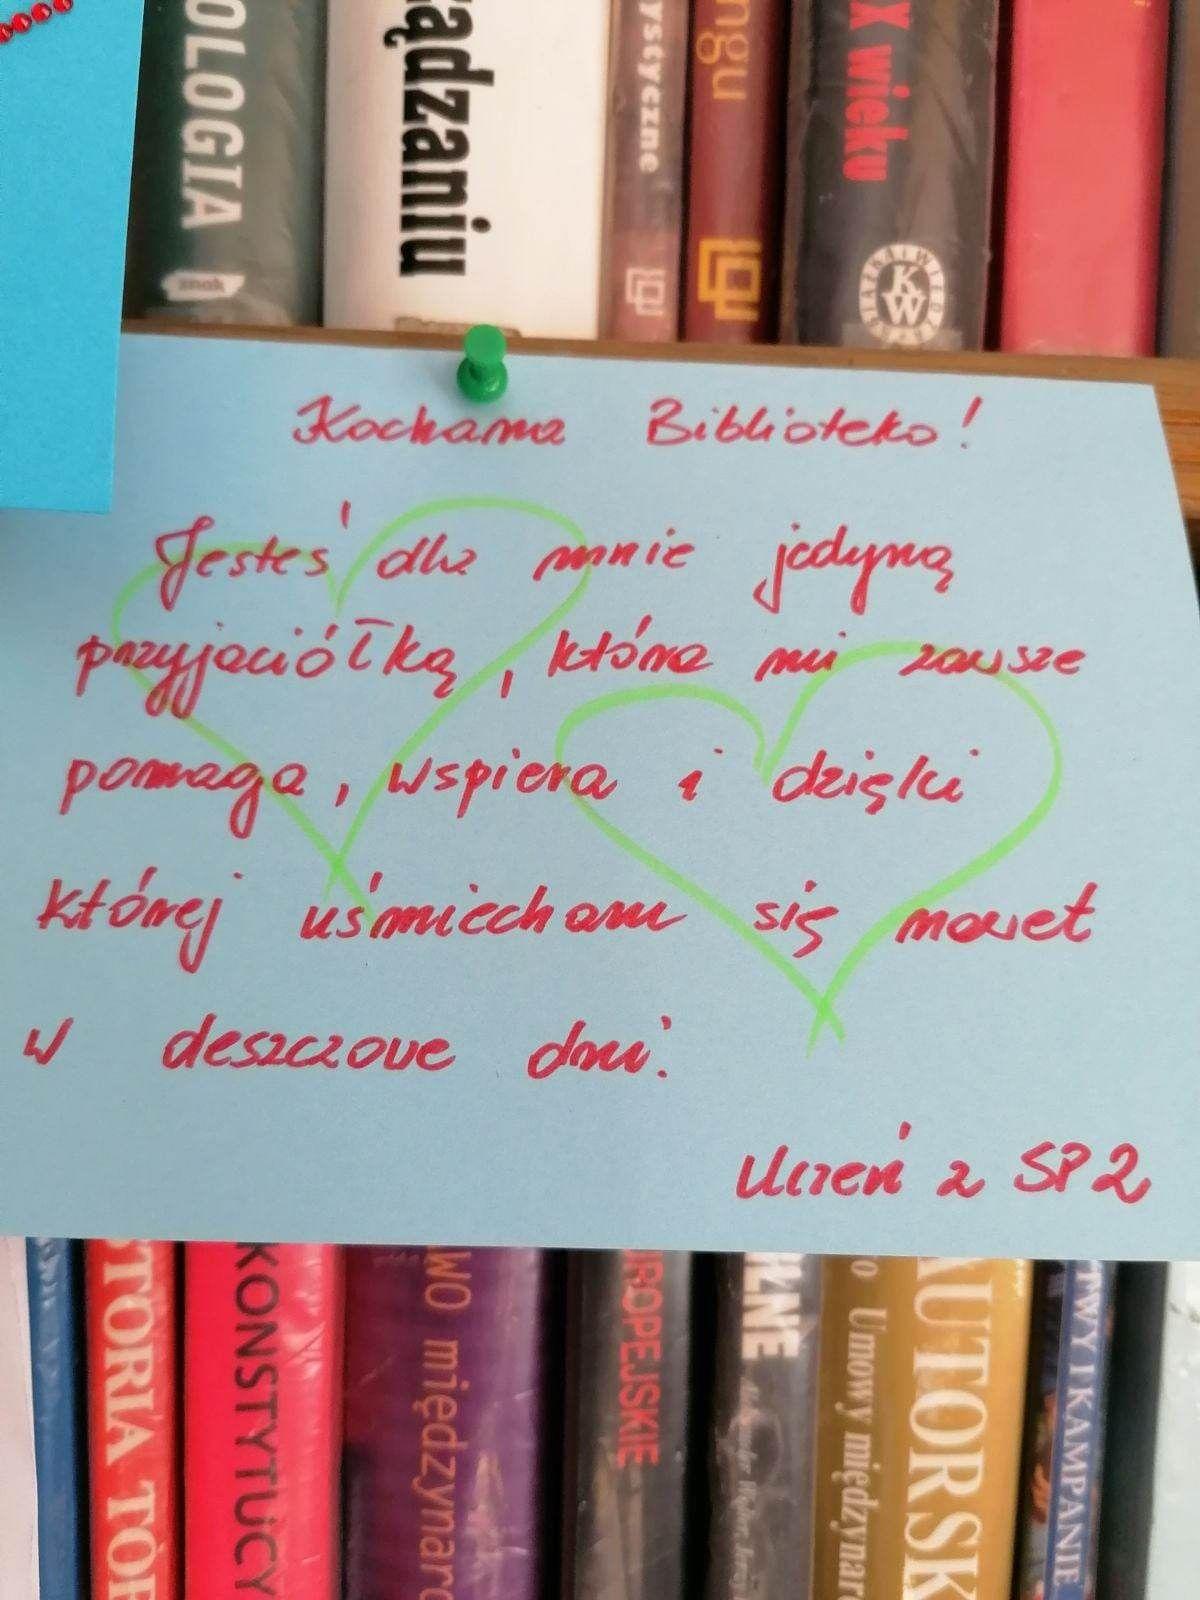 OLOGIA
znak
ądzaniu
ystyczne
ngu
X wieku
KW
Kochana Biblioteko!
Jesteś dla mnie jedyną
przyjaciółką, która mi zawsze
pomaga, wspiera i dzięki
której uśmiecham się nawet
w deszczowe dni.
Uczeń z SP 2
STORIA TÓR
KONSTYTUCY
WO międzynaro
UROPEJSKIE
LNE
o Umowy międzynaro
AUTORSK
TWY I KAMPANIE